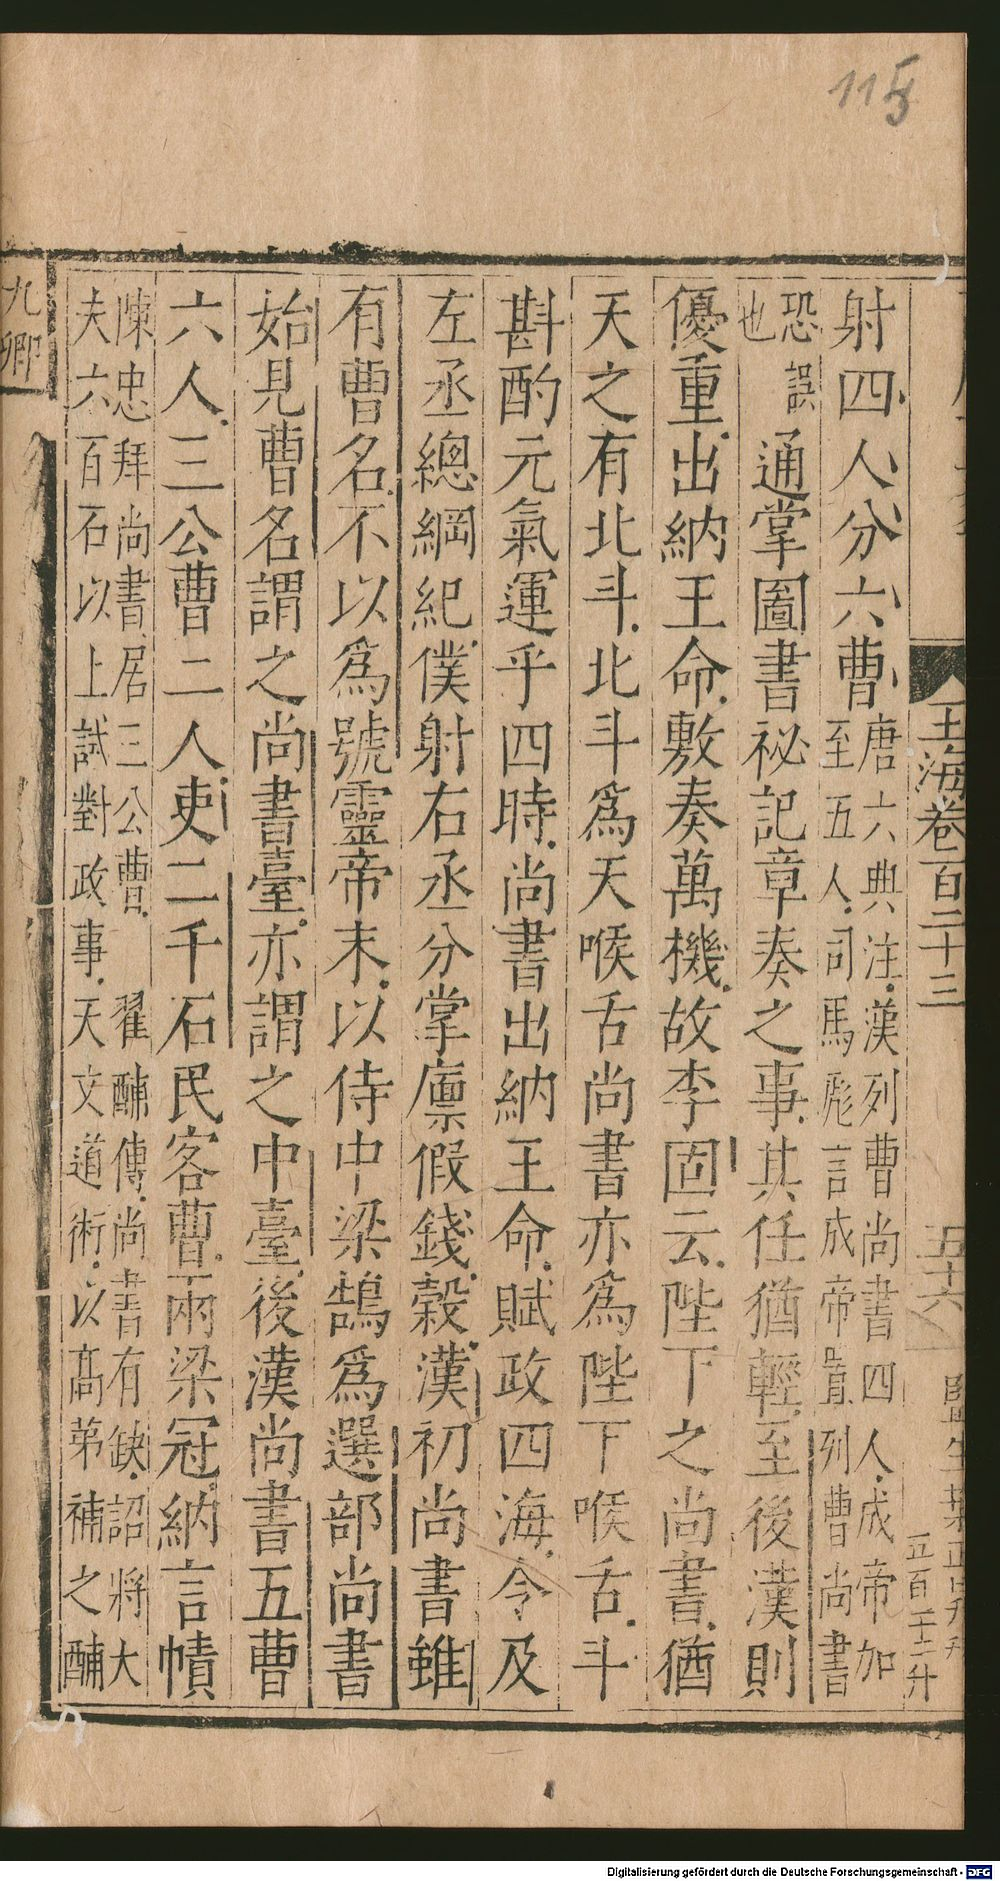 115
玉海卷一百二十三
五十六
五百二十二升
射四人分六曹唐六典注漢列曹尚書四人成帝加
至五人司馬彪言成帝置列曹尚書
恐誤
也
通掌圖書祕記章奏之事其任猶輕至後漢則
優重出納王命敷奏萬機故李固云陛下之尚書猶
天之有北斗北斗為天喉舌尚書亦為陛下喉舌斗
斟酌元氣運乎四時尚書出納王命賦政四海令及
左丞總綱紀僕射右丞分掌廩假錢穀漢初尚書雖
有曹名不以為號靈帝末以侍中梁鵠為選部尚書
始見曹名謂之尚書臺亦謂之中臺後漢尚書五曹
六人三公曹二人吏二千石民客曹兩梁冠納言幘
陳忠拜尚書居三公曹 翟酺傳尚書有缺詔將大
夫六百石以上試對政事天文道術以高第補之酺
九卿
Digitalisierung gefördert durch die Deutsche Forschungsgemeinschaft - DFG